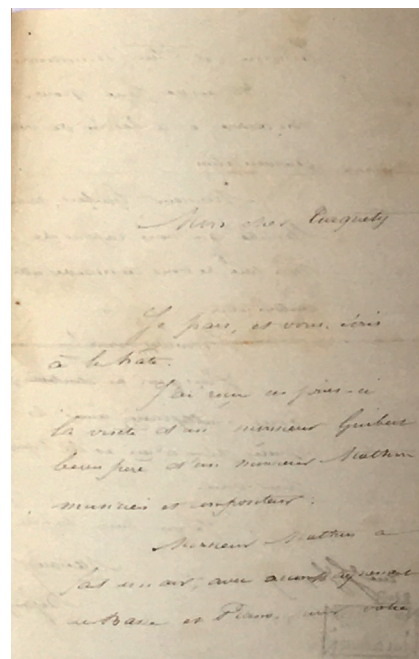 Mon cher Turquety
Je pars, et vous écris
à la hâte.
J'ai reçu ces jours-ci
la visite d'un monsieur Guibert
beau père d'un monsieur Mathieu
musicien et compositeur.
Monsieur Mathieu a
fait un air, avec accompagnement
de Basse et Piano, sur votre